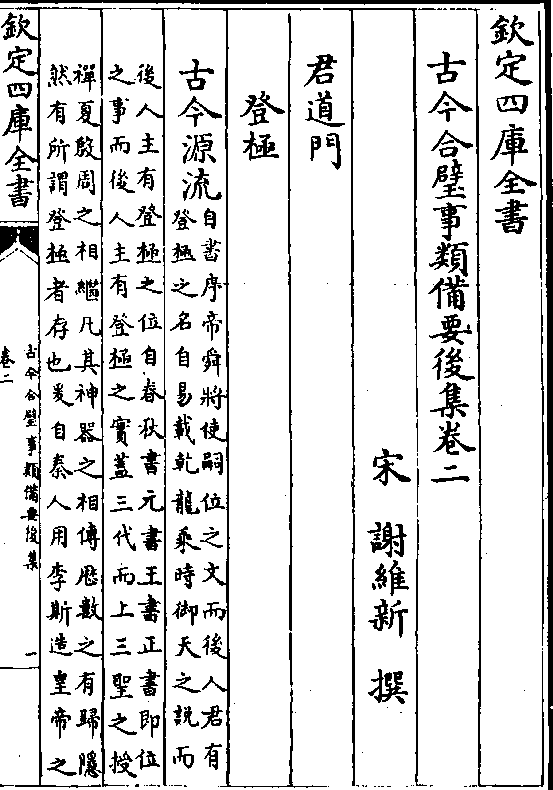 欽定四庫全書
古今合璧事類備要後集卷二
宋 謝維新 撰
君道門
登極
古今源流自書序帝舜將使嗣位之文而後人君有
登極之名自易載乾龍乘時御天之說而
後人主有登極之位自春秋書元書王書正書即位
之事而後人主有登極之實蓋三代而上三聖之授
禪夏殷周之相繼凡其神器之相傳厯數之有歸隱
然有所謂登極者存也爰自秦人用李斯造皇帝之
欽定四庫全書
古今合璧事類備要後集
卷二
一